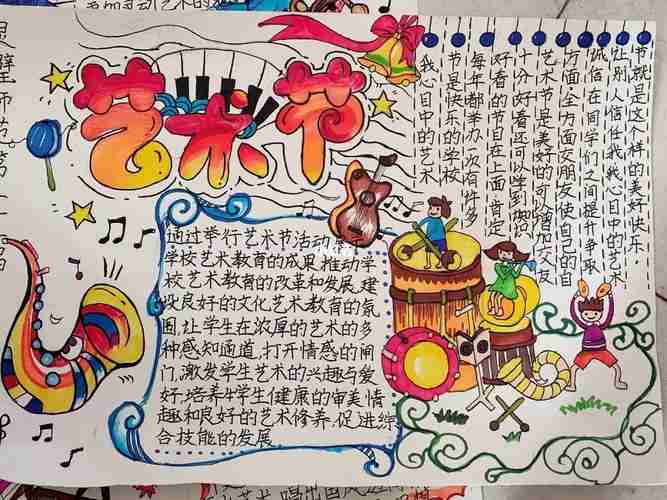 艺术节
通过举行艺术节活动,
学校艺术教育的成果,推动学
校艺术教育的改革和发展,建
设良好的文化艺术教育的氛
围,让学生在浓厚的艺术的多
种感知通道,打开情感的闸
门,激发学生艺术的兴趣与爱
好,培养学生健康的审美情
趣和良好的艺术修养,促进综
合技能的发展
我心目中的艺术
节是快乐的学校
每年都举办一次有许多
好看的节目在上面肯定
十分好看还可以学到知识,
艺术节是美好的可以增加交友
方面,全方面交朋友使自己的自
诚信在同学们之间提升争取
让别人信任我我心目中的艺术
节就是这个样的美好快乐.